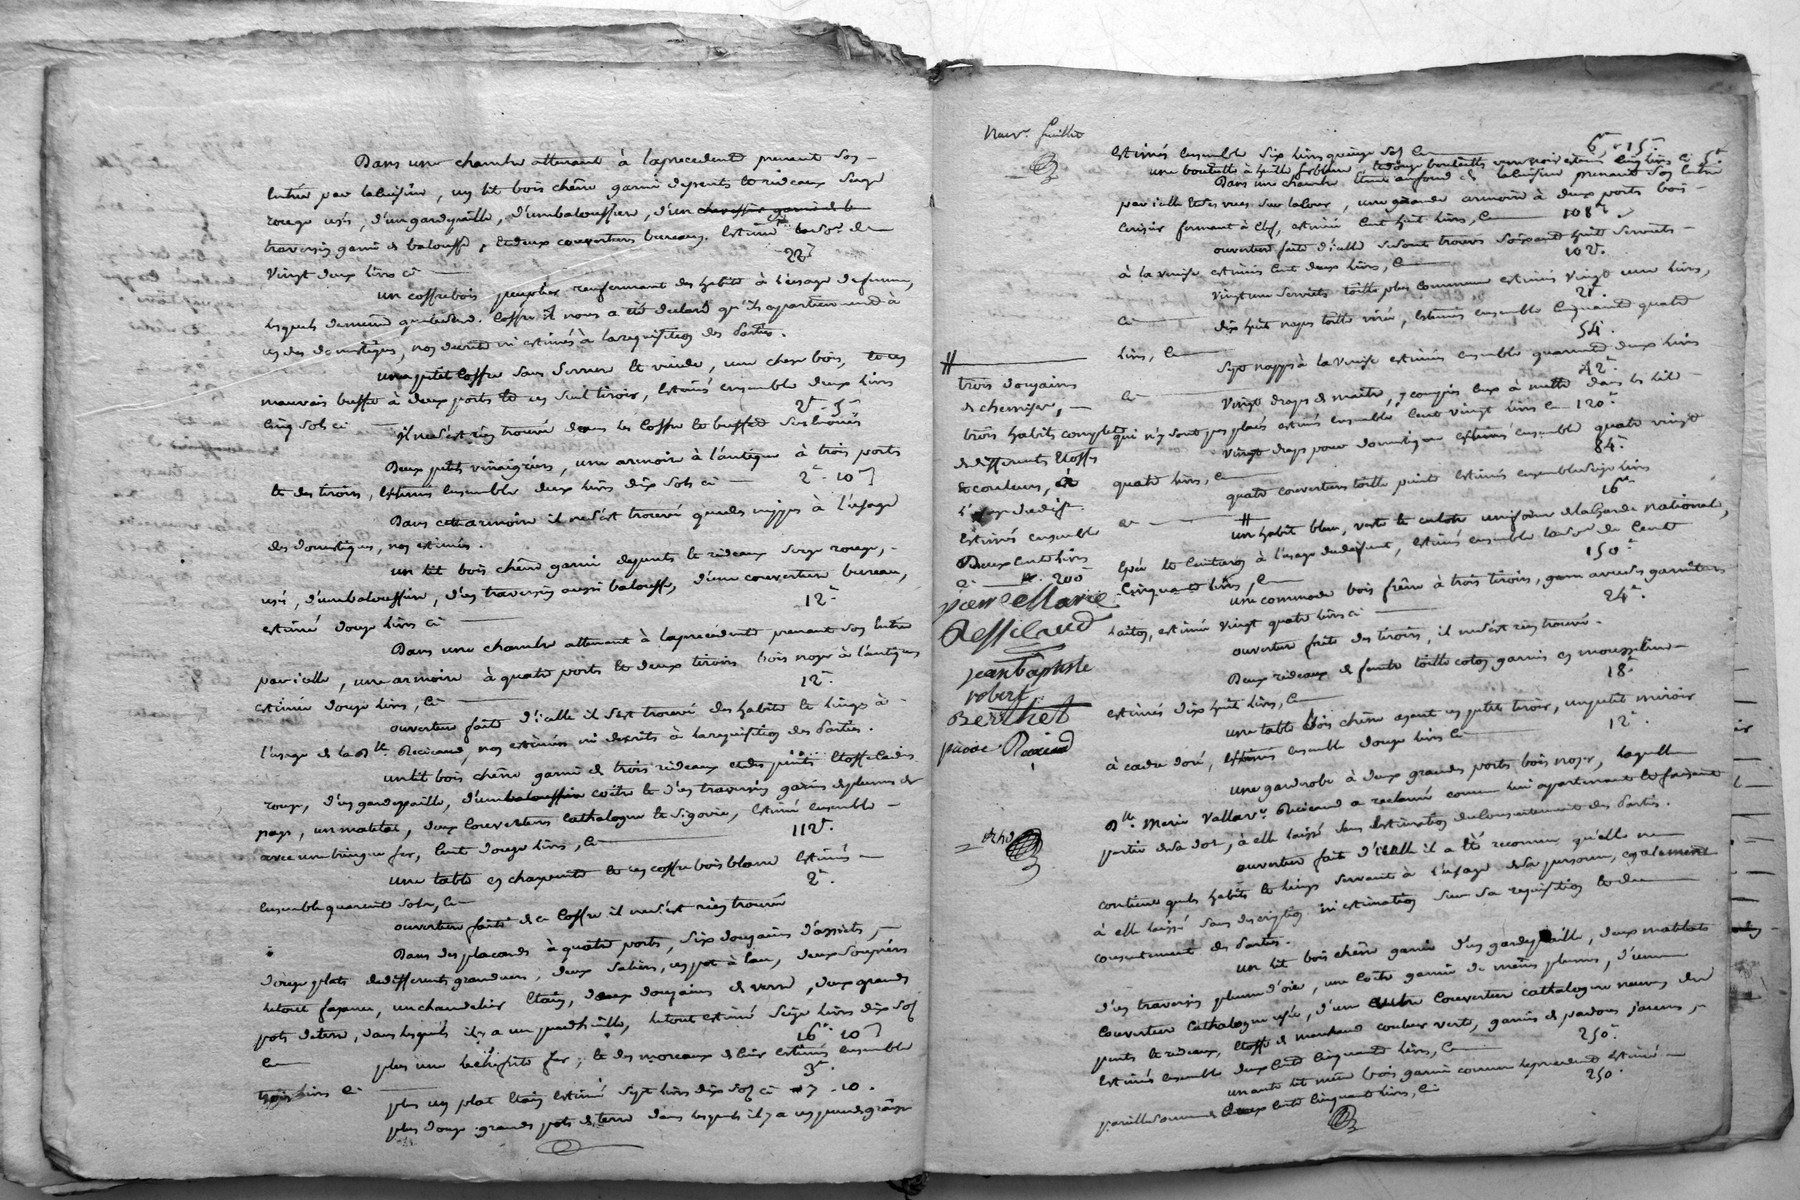 Dans une chambre attenant à laprecedente prenant son
entrée par lacuisine, un lit bois chêne garni de pents et rideaux serge
rouge usés, d'un gardepaille, d'unbalouffiere, d'un
traversin garni de balouffe, et deux couvertures bureau. Estimé
22#
vingt deux livres ci
un coffre bois peuplier renfermant des habits à l'usage de femme,
lesquels coffre il nous a été déclaré qu'ils appartiennent à
des domestiques, non decrits ni estimés à larequisition des Parties.
une petit coffre sans serrure et vuide, une chese bois, et un
mauvais buffet à deux ports et un seul tiroir, Estimés ensemble deux livres
2# - 5
cinq sols ci
il ne s'est rien trouvé dans les coffre et buffet
Deux petits vinaigriers, une armoire à l'antique à trois ports
et des tiroirs, estimés ensemble deux livres dix sols ci 2# - 10
Dans cette armoire il ne s'est trouvé que des nippes à l'usage
des domestiques, non estimés.
un lit bois chêne garni de pents et rideaux serge rouge,
usés, d'unbalouffiere, d'un traversin aussi balouffe, d'une couverture bureau,
12#
estimé douze livres ci
Dans une chambre attenant à laprecedente prenant son entrée
par icelle, une armoire à quatre ports et deux tiroirs bois noyer à l'antique
12#
estimée douze livres, ci
ouverture faite d'icelle il s'est trouvé des habits et linges à
l'usage de la Dlle Récicaud, non estimés ni decrits à larequisition des Parties.
un lit bois chêne garni de trois rideaux et des pents étoffe cadis
rouge, d'un gardepaille, d'un coitre et d'un traversin garnis de plumes de
pays, un matelat, deux couvertures cathalogne et sigovie, estimé ensemble
112#
avec une tringue fer, cent douze livres, ci
une table en charpente et un coffre bois blanc estimés
2#
ensemble quarante sols, ci
ouverture faite de ce coffre il ne s'est rien trouvé
Dans des placards à quatre ports, six douzaines d'assiets,
douze plats de differents grandeurs, deux saliers, un pot à l'au, deux soupieres
letout fayance, un chandelier étain, deux douzaines de verre, deux grands
pots de terre, dans lesquels il y a un peu d'huille, letout estimé seize livres dix sols
16# 10
ci
plus une lechefrite fer, et des morceaux de cuir estimés ensemble
3#
trois livres ci
plus un plat étain estimé sept livres dix sols ci 7 - 10
plus douze grands pots de terre dans lesquels il y a un peu de graisse
Neuve. feuillet
estimés ensemble six livres quinze sols ci
6# - 15
une bouteille à huille ferblanc estimés cinq livres ci 5#
Dans une chambre au fond de la cuisine prenant son entrée
par icelle et des vues sur la cour, une grande armoire à deux ports bois
cerisier fermant à clef, estimée cent huit livres, ci 108#
ouverture faite d'icelle se sont trouvés soixante huit serviets
102#
à la venise estimés cent deux livres, ci
vingt une serviets toille plus commune estimés vingt une livres,
21#
ci
dix huit napes toille virée, estimés ensemble cinquante quatre
54
livres, ci
sept nappes à la venise estimés ensemble quarante deux livres
42#
ci
vingt draps de maitre, y compris ceux à mettre dans les lits
qui n'y sont pas placés estimés ensemble cent vingt livres ci 120#
vingt draps pour domestique estimés ensemble quatre vingt
84#
quatre livres, ci
quatre couvertures toille peinte estimés ensemble seize livres
16#
ci
# un habit bleu, veste et culote uniforme de la Garde nationale,
épée et ceinturon à l'usage du deffunt, estimés ensemble la somme de cent
150#
cinquante livres, ci
une commode bois frêne à trois tiroirs, garnie avec des garnitures
24#
laiton, estimée vingt quatre livres ci
ouverture faite des tiroirs, il ne s'est rien trouvé.
Deux rideaux de fenetre toille coton garnis en mousseline
18#
estimés dix huit livres, ci
une table bois chêne ayant un petit tiroir, un petit miroir
12#
à cadre doré, estimés ensemble douze livres ci
une garderobe à deux grandes ports bois noyer, laquelle
Dlle Marie Récicaud a reclamé comme lui appartenant et faisant
partie de sa dot, à elle laissée sans estimation du consentement des Parties.
ouverture faite d'icelle il a été reconnu qu'elle ne
contient que les habits et linges servant à l'usage de sa personne, egalement
à elle laissé sans description ni estimation sur sa requisition et du
consentement des Parties.
un lit bois chêne garni d'un gardepaille, deux matelats
d'un traversin plume d'oie, une coitre garnie de même plume, d'une
couverture cathalogne usée, d'une autre couverture cathalogne neuve, de
pents et rideaux, étoffe de marchand couleur verte, garnis de padoux jaunes,
250#
estimés ensemble deux cents cinquante livres, ci
un autre lit même bois garni comme leprecedent estimé
250
pareille somme de deux cents cinquante livres, ci
#
trois douzaines
de chemises,
trois habits complets
de differents étoffes
et couleurs, à
l'usage dudit
Estimés ensemble
Deux cents livres
ci 200
pierre Marie
Ressicaud
jean baptiste
robert
Berthet
pierre Récicaud